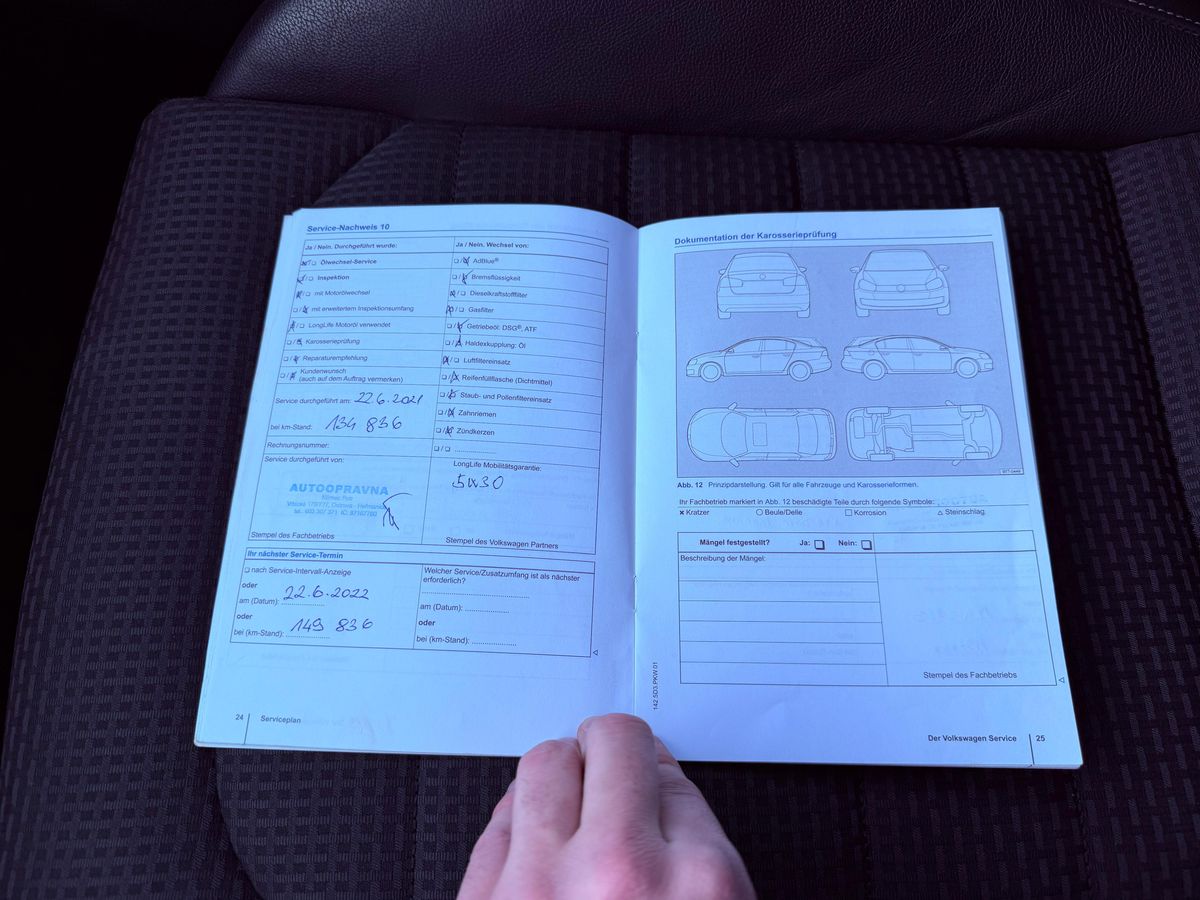 Service-Nachweis 10
Ja / Nein. Durchgeführt wurde:
Ölwechsel-Service
Inspektion
mit Motorölwechsel
mit erweitertem Inspektionsumfang
LongLife Motoröl verwendet
Karosserieprüfung
Reparaturempfehlung
Kundenwunsch
(auch auf dem Auftrag vermerken)
Service durchgeführt am: 22.6.2021
bei km-Stand: 134 836
Rechnungsnummer:
Service durchgeführt von:
AUTOOPRAVNA
Stempel des Fachbetriebs
Ja / Nein. Wechsel von:
AdBlue®
Bremsflüssigkeit
Dieselkraftstofffilter
Gasfilter
Getriebeöl: DSG®, ATF
Haldexkupplung: Öl
Luftfiltereinsatz
Reifenfüllflasche (Dichtmittel)
Staub- und Pollenfiltereinsatz
Zahnriemen
Zündkerzen
LongLife Mobilitätsgarantie:
5W30
Stempel des Volkswagen Partners
Ihr nächster Service-Termin
nach Service-Intervall-Anzeige
oder
am (Datum): 22.6.2022
oder
bei (km-Stand): 149 836
Welcher Service/Zusatzumfang ist als nächster
erforderlich?
am (Datum):
oder
bei (km-Stand):
24 Serviceplan
Dokumentation der Karosserieprüfung
Abb. 12 Prinzipdarstellung. Gilt für alle Fahrzeuge und Karosserieformen.
Ihr Fachbetrieb markiert in Abb. 12 beschädigte Teile durch folgende Symbole:
× Kratzer ○ Beule/Delle □ Korrosion △ Steinschlag
Mängel festgestellt? Ja: Nein:
Beschreibung der Mängel:
Stempel des Fachbetriebs
142.5D3.PKW.01
Der Volkswagen Service 25